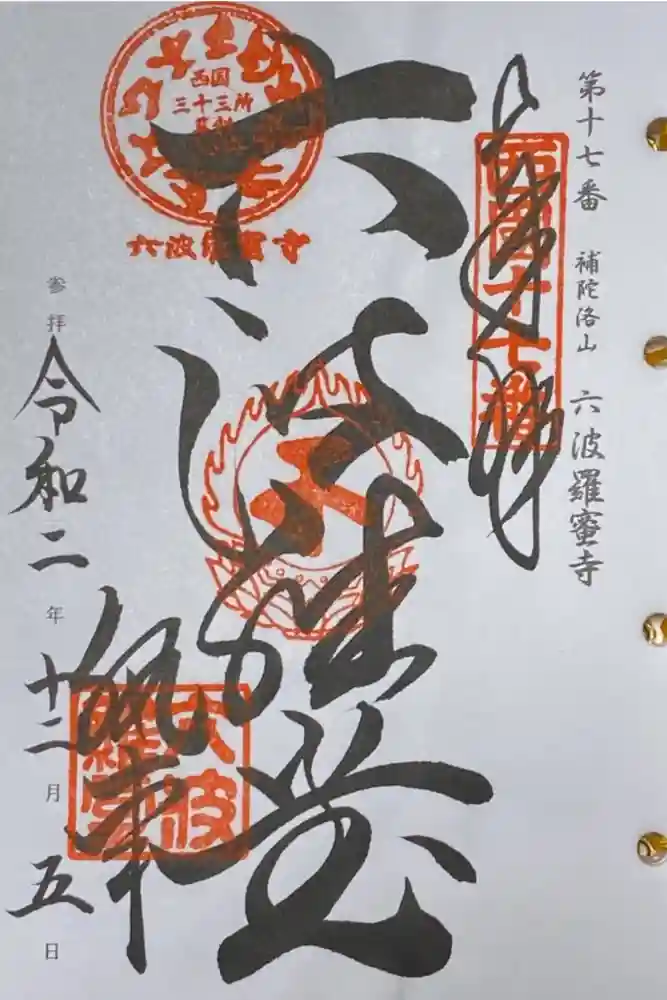 第十七番 補陀洛山 六波羅蜜寺
奉拝
西國十七番
西国
三十三所
草創
六波羅蜜寺
六波羅堂
執事
六波
羅堂
参拝 令和二年十二月五日